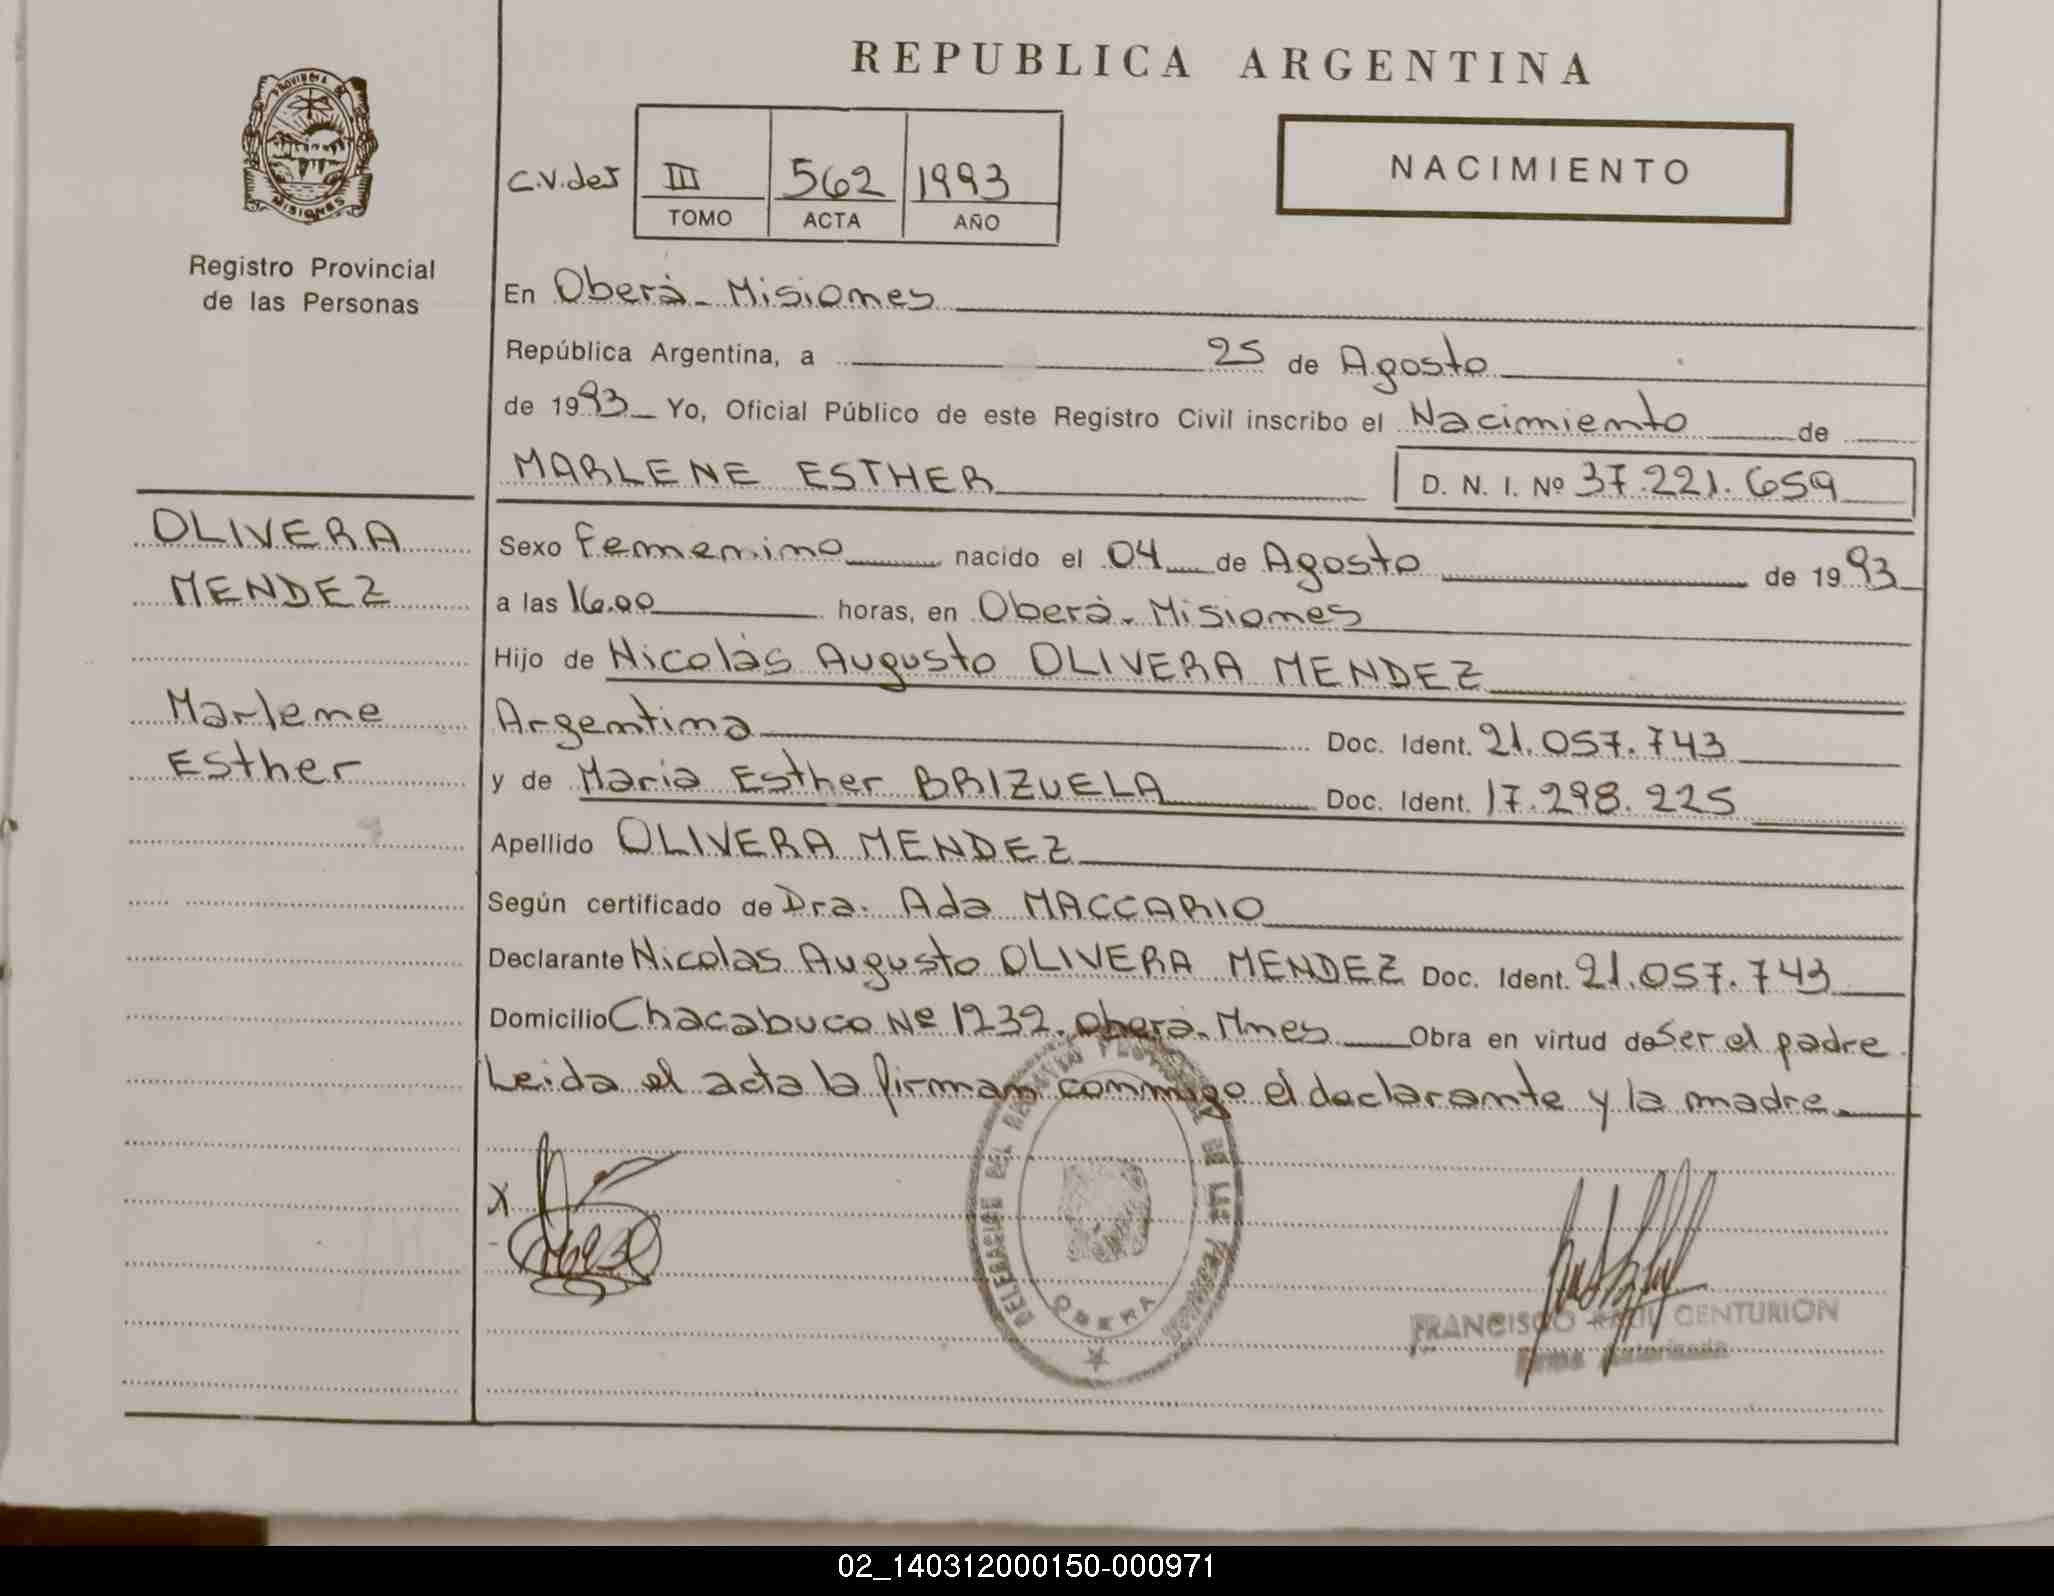 REPUBLICA ARGENTINA
PROVINCIA DE
MISIONES
Registro Provincial
de las Personas
C.V.des
III 562 1993
TOMO ACTA AÑO
NACIMIENTO
En Oberá - Misiones
República Argentina, a 25 de Agosto
de 1993 Yo, Oficial Público de este Registro Civil inscribo el Nacimiento de
MARLENE ESTHER D. N. I. Nº 37.221.659
OLIVERA
MENDEZ
Marlene
Esther
Sexo Femenino nacido el 04 de Agosto de 1993
a las 16.00 horas, en Oberá - Misiones
Hijo de Nicolás Augusto OLIVERA MENDEZ
Argentina Doc. Ident. 21.057.743
y de Maria Esther BRIZUELA Doc. Ident. 17.298.225
Apellido OLIVERA MENDEZ
Según certificado de Dra. Ada MACCARIO
Declarante Nicolas Augusto OLIVERA MENDEZ Doc. Ident. 21.057.743
Domicilio Chacabuco Nº 1232. Oberá - Mnes Obra en virtud de Ser el padre.
Leida el acta la firman conmigo el declarante y la madre.
X
DELEGACION DEL REGISTRO PROVINCIAL DE LAS PERSONAS
OBERA
FRANCISCO RAUL CENTURION
Firma Autorizada
02_140312000150-000971